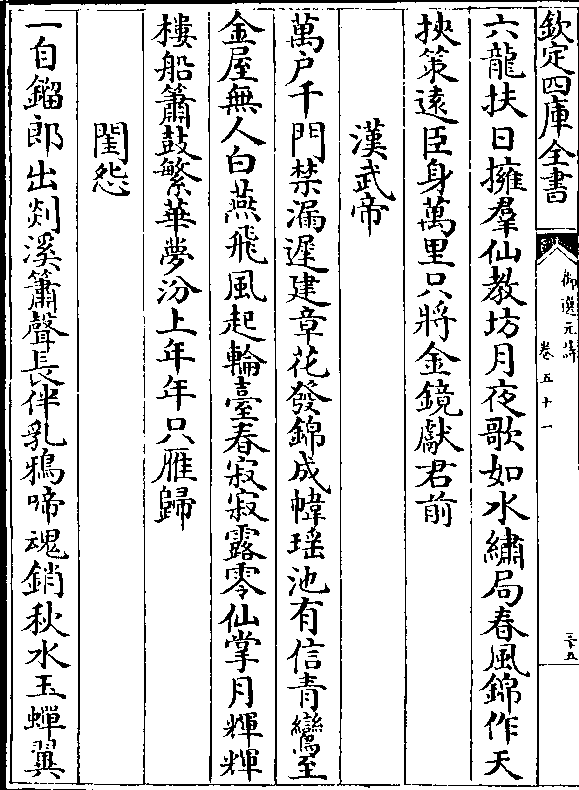 欽定四庫全書
御選元詩
卷五十一
三十五
六龍扶日擁羣仙教坊月夜歌如水繡局春風錦作天
挾策逺臣身萬里只將金鏡獻君前
漢武帝
萬户千門禁漏遲建章花發錦成幃瑶池有信青鸞至
金屋無人白燕飛風起輪臺春寂寂露零仙掌月輝輝
樓船簫鼓繁華夢汾上年年只雁歸
閨怨
一自鎦郎出剡溪簫聲長伴乳鴉啼魂銷秋水玉蟬翼